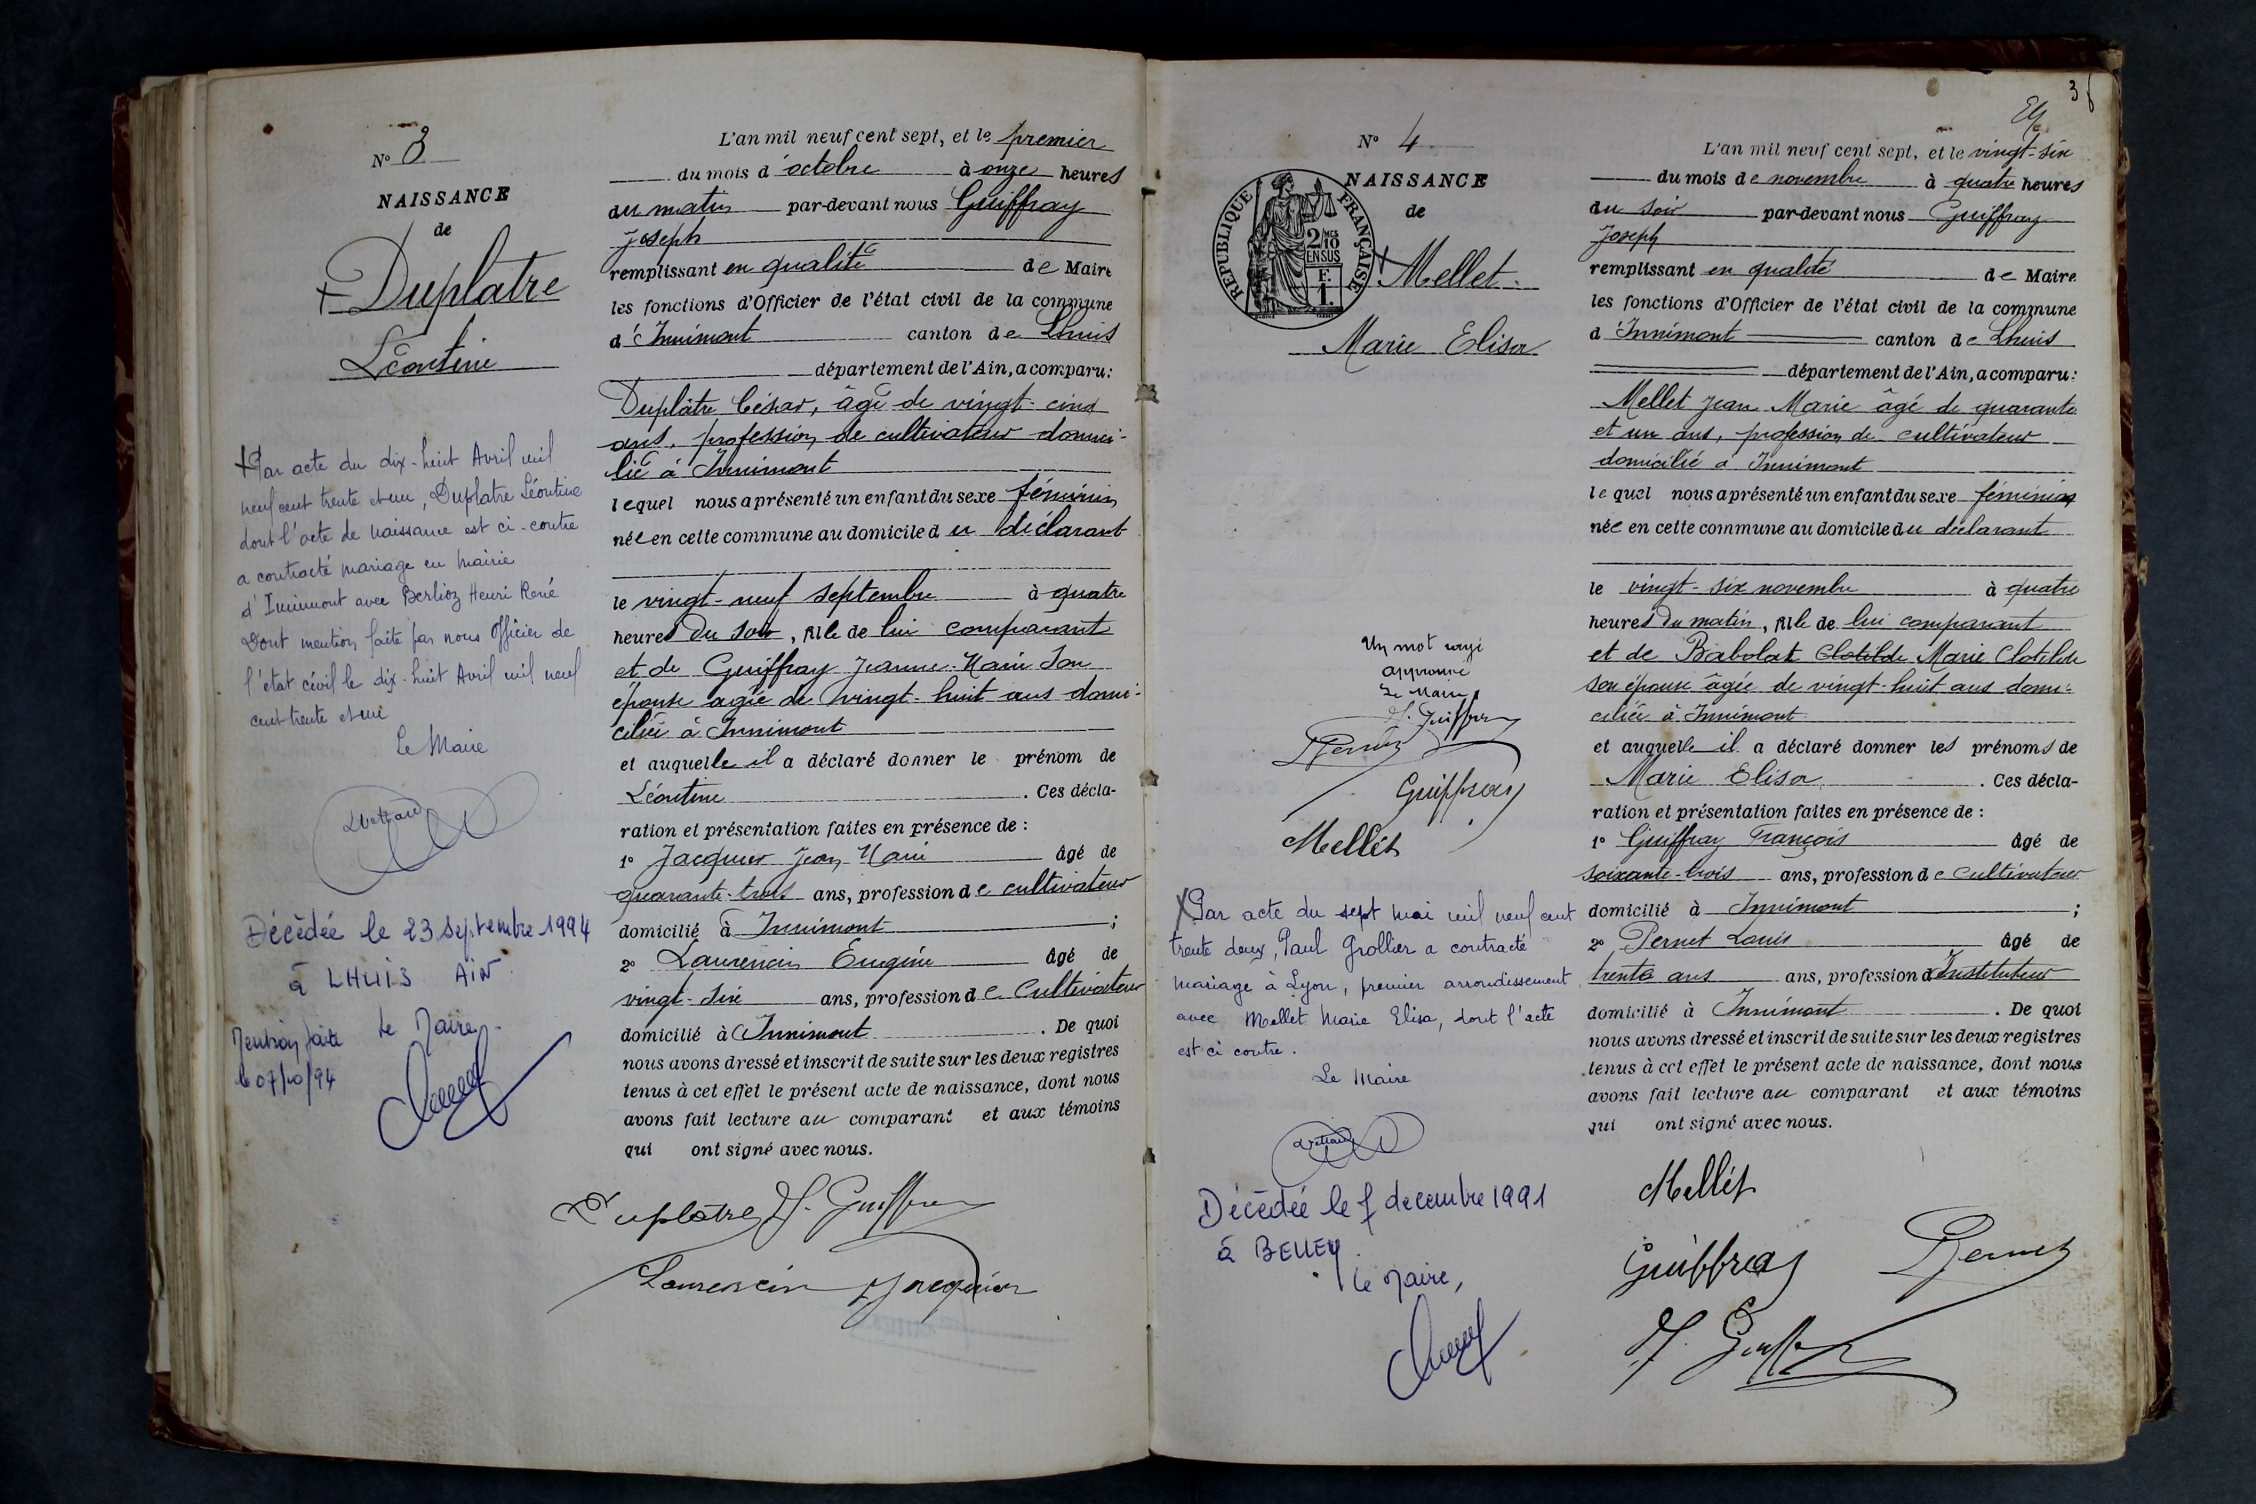 N° 3
NAISSANCE
de
Duplatre
Léontine
Par acte du dix-huit Avril mil
neuf cent trente et un, Duplatre Léontine
dont l'acte de naissance est ci-contre
a contracté mariage en mairie
d'Innimont avec Berlioz Henri René
Dont mention faite par nous Officier de
l'état civil le dix-huit Avril mil neuf
cent trente et un
Le Maire
Décèdée le 23 septembre 1994
à LHUIS AIN
Mention faite Le Maire,
le 07/10/94
L'an mil neuf cent sept, et le premier
du mois d'octobre à onze heures
du matin par-devant nous Guiffray
Joseph
remplissant en qualité de Maire
les fonctions d'Officier de l'état civil de la commune
d'Innimont canton de Lhuis
département de l'Ain, a comparu:
Duplâtre César, âgé de vingt-cinq
ans, profession de cultivateur domici-
lié à Innimont
lequel nous a présenté un enfant du sexe féminin
née en cette commune au domicile du déclarant
le vingt-neuf septembre à quatre
heures du soir, fille de lui comparant
et de Guiffray Jeanne-Marie son
épouse agée de vingt-huit ans domi-
ciliée à Innimont
et auquelle il a déclaré donner le prénom de
Léontine. Ces décla-
ration et présentation faites en présence de :
1° Jacquier Jean Marie âgé de
quarante-trois ans, profession de cultivateur
domicilié à Innimont ;
2° Laurencin Eugène âgé de
vingt-six ans, profession de Cultivateur
domicilié à Innimont. De quoi
nous avons dressé et inscrit de suite sur les deux registres
tenus à cet effet le présent acte de naissance, dont nous
avons fait lecture au comparant et aux témoins
qui ont signé avec nous.
Duplâtre J. Guiffray
Laurencin Jacquier
N° 4
NAISSANCE
de
REPUBLIQUE FRANÇAISE
2/10 MES
EN SUS
F.
1
Mellet
Marie Elisa
Un mot rayé
approuvé
Le Maire
J. Guiffray
Pernet
Guiffray
Mellet
Par acte du sept mai mil neuf cent
trente deux, Paul Grollier a contracté
mariage à Lyon, premier arrondissement
avec Mellet Marie Elisa, dont l'acte
est ci contre.
Le Maire
Décèdée le 7 decembre 1991
à BELLEY.
Le Maire,
36
L'an mil neuf cent sept, et le vingt-six
du mois de novembre à quatre heures
du soir par-devant nous Guiffray
Joseph
remplissant en qualité de Maire
les fonctions d'Officier de l'état civil de la commune
d'Innimont canton de Lhuis
département de l'Ain, a comparu:
Mellet Jean Marie âgé de quarante
et un ans, profession de cultivateur
domicilié à Innimont
lequel nous a présenté un enfant du sexe féminin
née en cette commune au domicile du déclarant
le vingt-six novembre à quatre
heures du matin, fille de lui comparant
et de Babolat Clotilde Marie Clotilde
son épouse âgée de vingt-huit ans domi-
ciliée à Innimont
et auquelle il a déclaré donner les prénoms de
Marie Elisa. Ces décla-
ration et présentation faites en présence de :
1° Guiffray François âgé de
soixante-trois ans, profession de cultivateur
domicilié à Innimont ;
2° Pernet Louis âgé de
trente ans ans, profession d'Instituteur
domicilié à Innimont. De quoi
nous avons dressé et inscrit de suite sur les deux registres
tenus à cet effet le présent acte de naissance, dont nous
avons fait lecture au comparant et aux témoins
qui ont signé avec nous.
Mellet
Guiffray Pernet
J. Guiffray